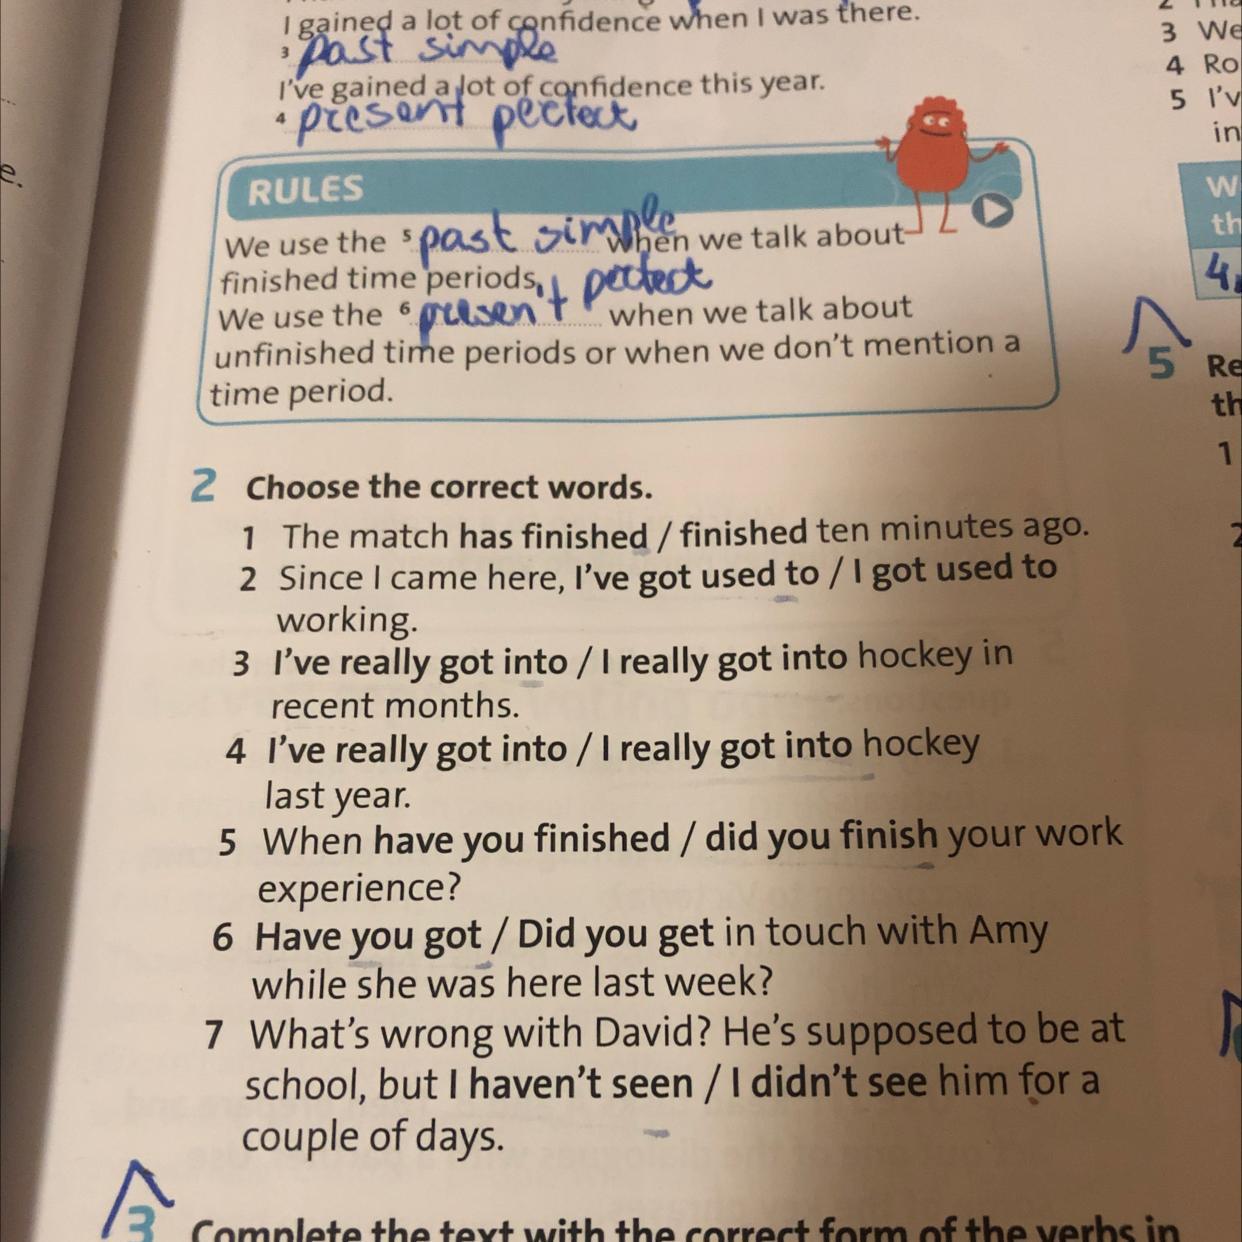 I gained a lot of confidence when I was there.
3 past simple
I've gained a lot of confidence this year.
4 present perfect
RULES
We use the 5 past simple when we talk about
finished time periods.
We use the 6 presen't perfect when we talk about
unfinished time periods or when we don't mention a
time period.
2 Choose the correct words.
1 The match has finished / finished ten minutes ago.
2 Since I came here, I've got used to / I got used to
working.
3 I've really got into / I really got into hockey in
recent months.
4 I've really got into / I really got into hockey
last year.
5 When have you finished / did you finish your work
experience?
6 Have you got / Did you get in touch with Amy
while she was here last week?
7 What's wrong with David? He's supposed to be at
school, but I haven't seen / I didn't see him for a
couple of days.
3 Complete the text with the correct form of the verbs in
3 We
4 Ro
5 I'v
in
W
th
4
5 Re
th
1
2